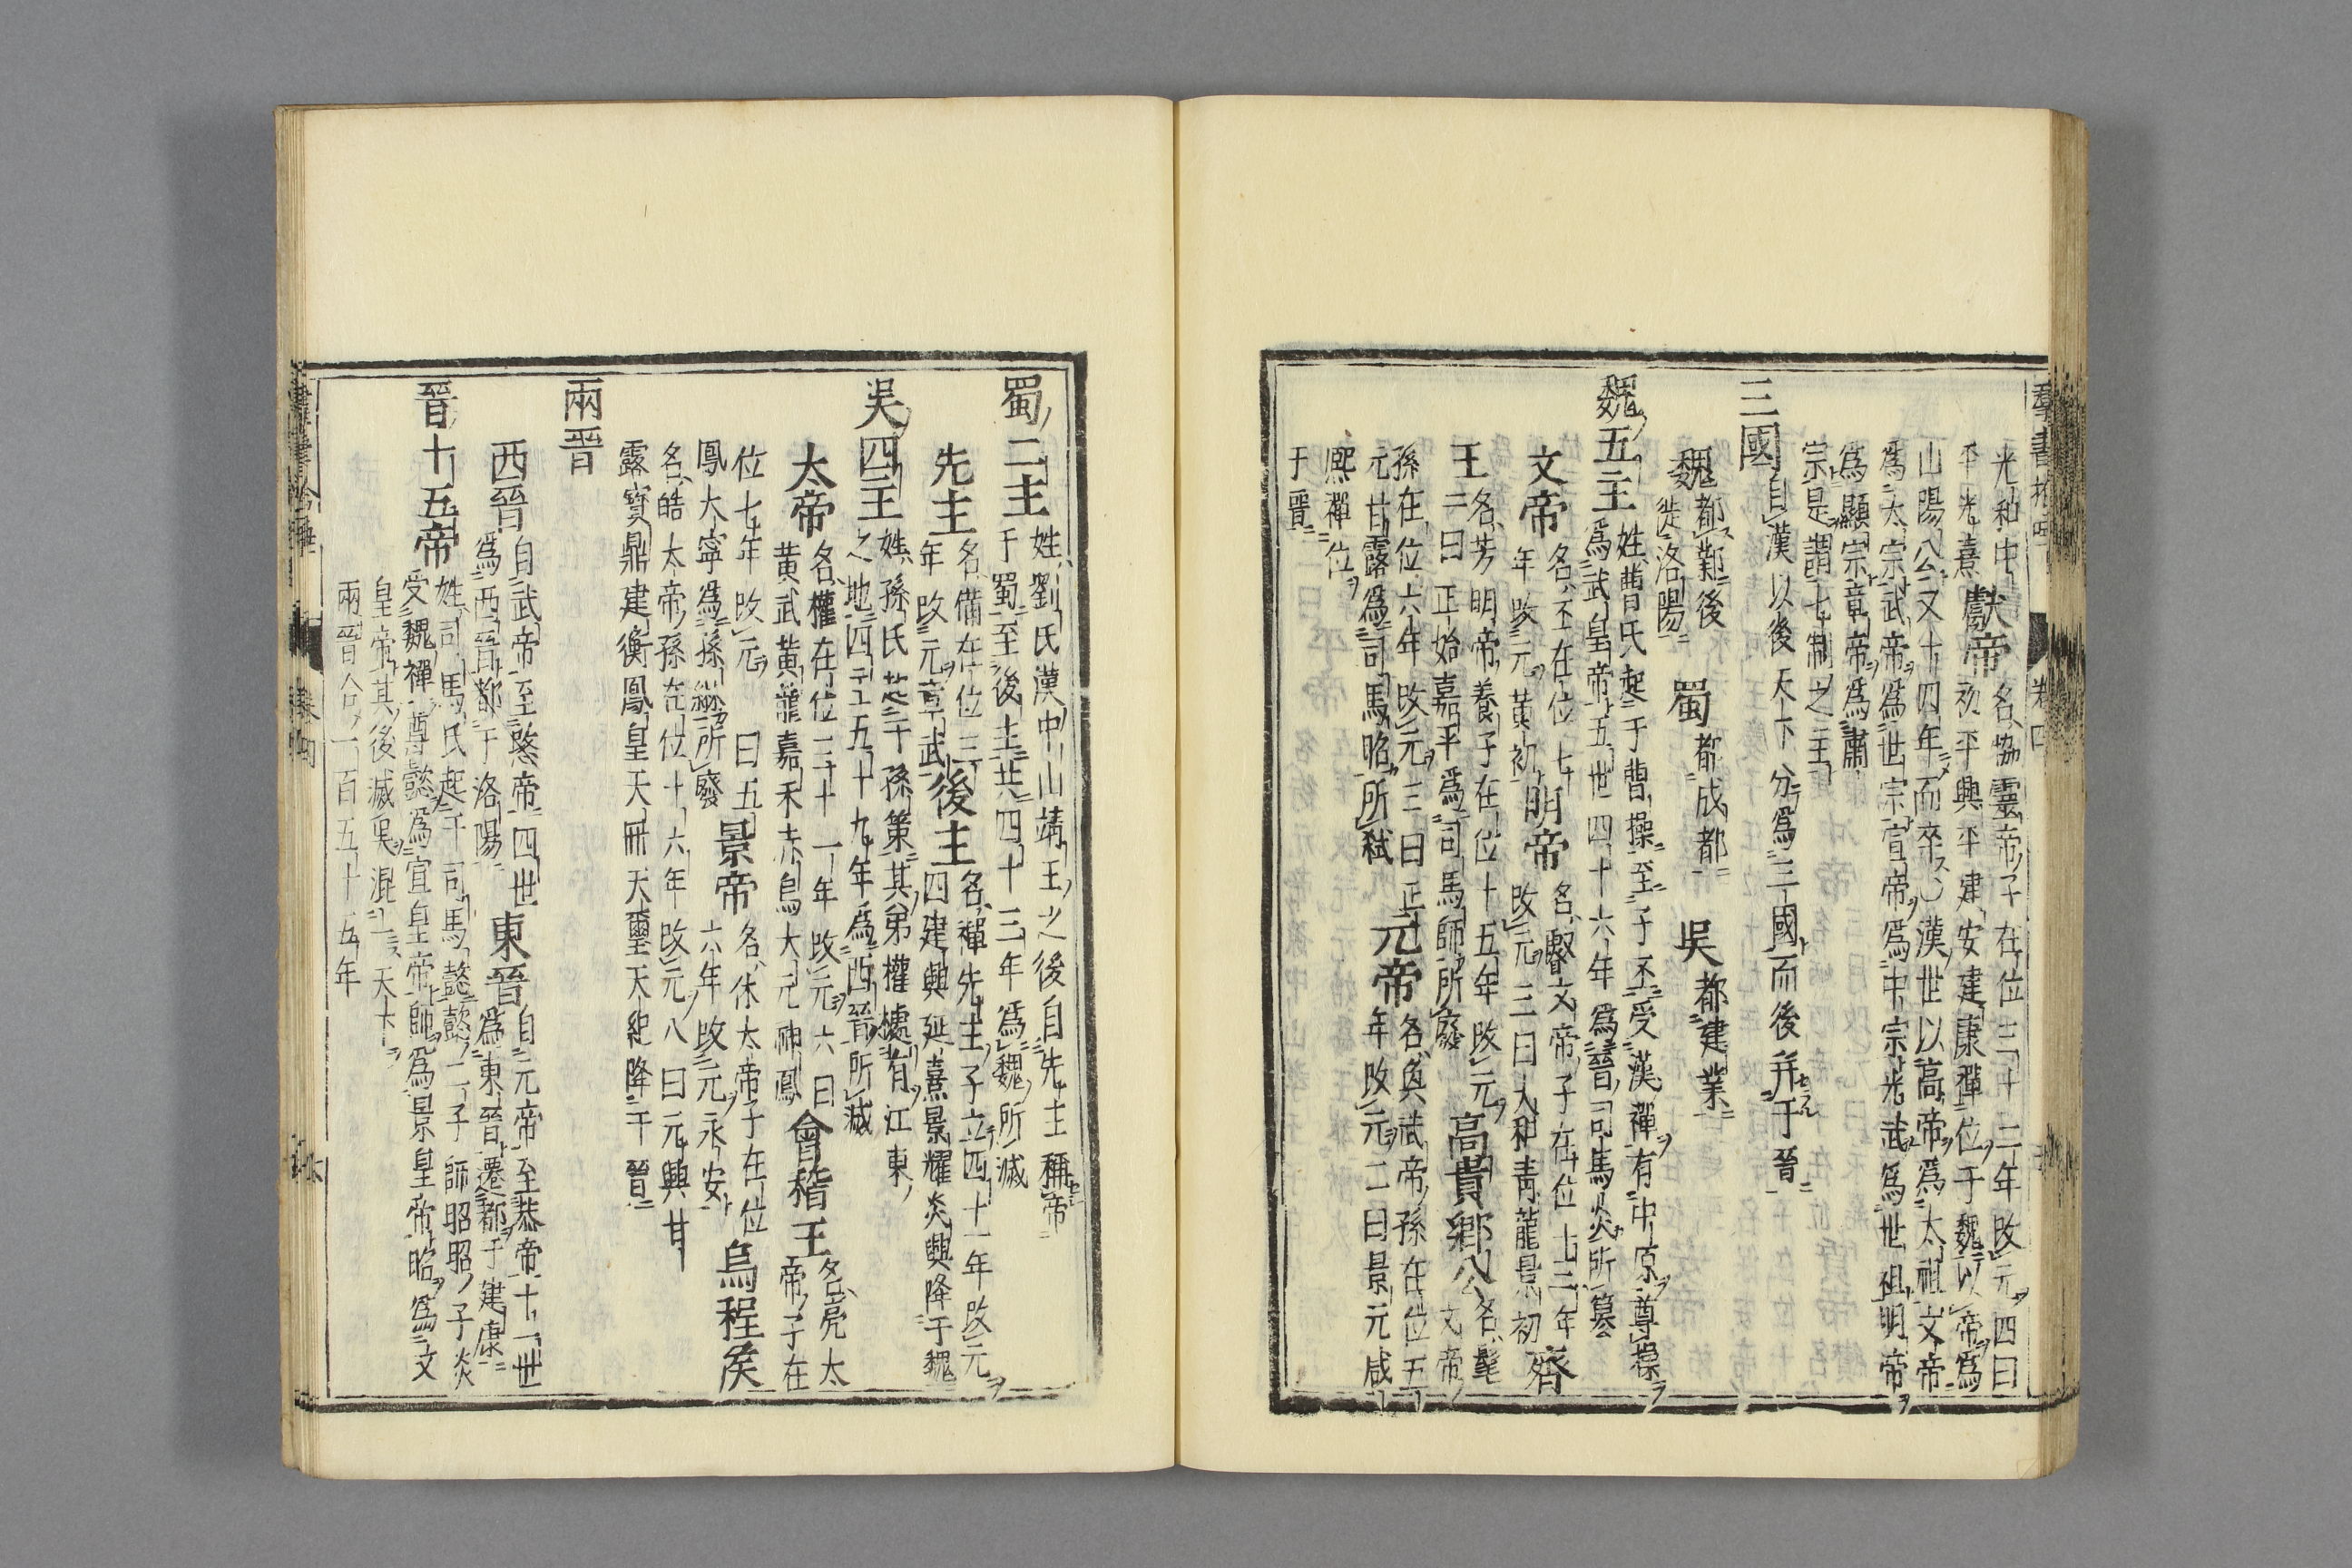 群書拾唾 卷四
光和中
平光熹
獻帝
名協靈帝子在位三十二年改元四曰
初平興平建安建康禪位于魏以帝爲
山陽公又十四年而卒○漢世以高帝爲太祖文帝
爲太宗武帝爲世宗宣帝爲中宗光武爲世祖明帝
爲顯宗章帝爲肅
宗是謂七制之主
三國
自漢以後天下分爲三國而後并于晉
魏
都鄴後
徙洛陽
蜀
都成都
吳
都建業
魏五主
姓曹氏起于曹操至子丕受漢禪有中原尊操
爲武皇帝五世四十六年爲晉司馬炎所篡
文帝
名丕在位七
年改元黃初
明帝
名叡文帝子在位十三年
改元三曰太和靑龍景初
齊
王
名芳明帝養子在位十五年改元
二曰正始嘉平爲司馬師所廢
高貴鄉公
名髦文帝
孫在位六年改元三曰正
元甘露爲司馬昭所弒
元帝
名奐武帝孫在位五
年改元二曰景元咸
熙禪位
于晉
蜀二主
姓劉氏漢中山靖王之後自先主稱帝
于蜀至後主共四十三年爲魏所滅
先主
名備在位三
年改元章武
後主
名禪先主子立四十一年改元
四建興延熹景耀炎興降于魏
吳四主
姓孫氏起于孫策其弟權據有江東
之地四主五十九年爲西晉所滅
太帝
名權在位三十一年改元六曰
黃武黃龍嘉禾赤烏大元神鳳
會稽王
名亮太
帝子在
位七年改元曰五
鳳大寧爲孫綝所廢
景帝
名休太帝子在位
六年改元永安
烏程矦
名皓太帝孫在位十六年改元八曰元興甘
露寶鼎建衡鳳皇天冊天璽天紀降于晉
兩晉
西晉
自武帝至愍帝四世
爲西晉都于洛陽
東晉
自元帝至恭帝十一世
爲東晉遷都于建康
晉十五帝
姓司馬氏起于司馬懿懿二子師昭昭子炎
受魏禪尊懿爲宣皇帝師爲景皇帝昭爲文
皇帝其後滅吳混一天下
兩晉合一百五十五年
卷四